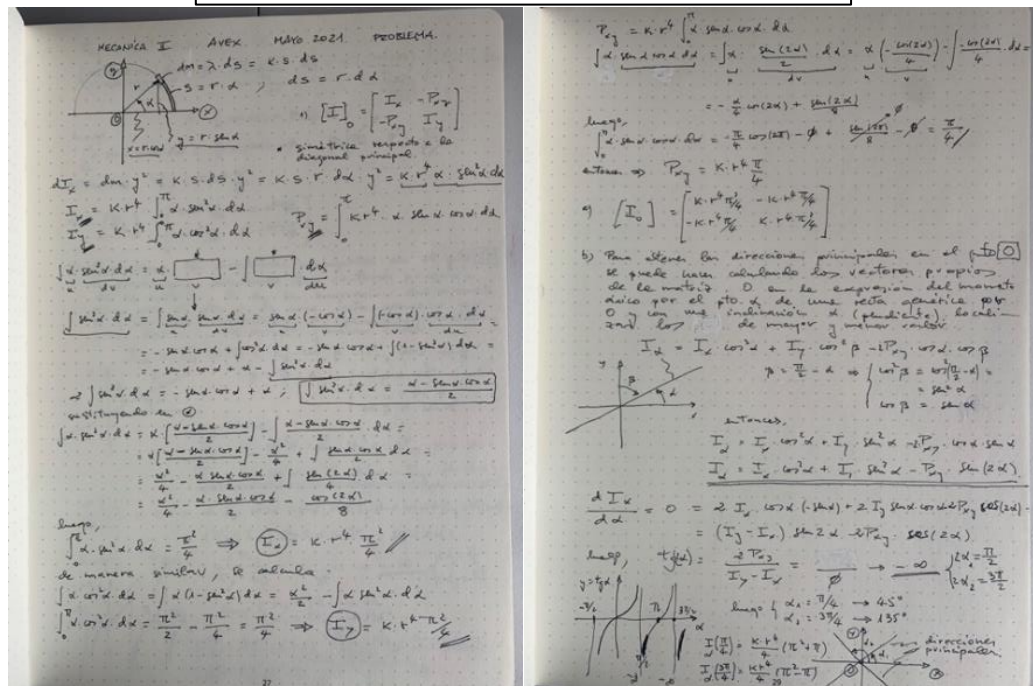 MECANICA II AVEX. MAYO 2021 PROBLEMA.
dm = λ·ds = K·s·ds
s = r·α ; ds = r·dα
y = r·senα
x = r·cosα
a) [I]₀ = [ Iₓ -Pₓᵧ ; -Pₓᵧ Iᵧ ]
• simétrica respecto a la
diagonal principal.
dIₓ = dm·y² = K·s·ds·y² = K·s·r·dα·y² = K·r⁴ α·sen²α·dα
Iₓ = K·r⁴ ∫₀^π α·sen²α·dα
Pₓᵧ = ∫₀^π K·r⁴·α·senα·cosα·dα
Iᵧ = K·r⁴ ∫₀^π α·cos²α·dα
∫ α·sen²α·dα = α· □ - ∫ □ · dα
u dv u v v du
∫ sen²α·dα = ∫ senα·senα·dα = senα·(-cosα) - ∫(-cosα)·cosα·dα =
= -senα·cosα + ∫cos²α·dα = -senα·cosα + ∫(1-sen²α)dα =
= -senα·cosα + α - ∫sen²α·dα
2∫sen²α·dα = -senα·cosα + α ; ∫sen²α·dα = (α - senα·cosα)/2
sustituyendo en
∫α·sen²α·dα = α·[(α - senα·cosα)/2] - ∫(α - senα·cosα)/2 · dα =
= α[(α - senα·cosα)/2] - α²/4 + ∫(senα·cosα)/2 dα =
= α²/4 - (α senα·cosα)/2 + ∫ sen(2α)/4 dα =
= α²/4 - (α·senα·cosα)/2 - cos(2α)/8
luego,
∫₀^π α·sen²α·dα = π²/4 ⇒ Iₓ = K·r⁴ π²/4
de manera similar, se calcula
∫α·cos²α·dα = ∫α(1-sen²α)dα = α²/2 - ∫α sen²α·dα
∫₀^π α·cos²α·dα = π²/2 - π²/4 = π²/4 ⇒ Iᵧ = K·r⁴·π²/4
27
Pₓᵧ = K·r⁴ ∫₀^π α·senα·cosα·dα
∫α·senα cosα dα = ∫α· sen(2α)/2 ·dα = α(-cos(2α)/4) - ∫ -cos(2α)/4 ·dα =
u dv u v
= -α/4 cos(2α) + sen(2α)/8
luego,
∫₀^π α·senα·cosα·dα = -π/4 cos(2π) - ∅ + sen(2π)/8 - ∅ = π/4
entonces ⇒ Pₓᵧ = K·r⁴ π/4
a) [I₀] = [ K·r⁴π²/4 -K·r⁴π/4 ; -K·r⁴π/4 K·r⁴π²/4 ]
b) Para obtener las direcciones principales en el pto O
se puede hacer calculando los vectores propios
de la matriz. O en la expresión del momento
áxico por el pto. de una recta genérica por
O y con una inclinación α (pendiente), locali-
zar los de mayor y menor valor
I_α = Iₓ·cos²α + Iᵧ·cos²β - 2Pₓᵧ·cosα·cosβ
β = π/2 - α ⇒ cos²β = cos²(π/2 - α) =
= sen²α
cosβ = senα
entonces,
I_α = Iₓ·cos²α + Iᵧ·sen²α - 2Pₓᵧ·cosα·senα
I_α = Iₓ·cos²α + Iᵧ·sen²α - Pₓᵧ·sen(2α)
dI_α/dα = 0 = 2 Iₓ·cosα(-senα) + 2 Iᵧ senα·cosα 2Pₓᵧ cos(2α) =
= (Iᵧ - Iₓ) sen2α - 2Pₓᵧ·cos(2α)
luego, tg(2α) = 2Pₓᵧ/(Iᵧ - Iₓ) = /∅ → -∞ 2α₁ = π/2
2α₂ = 3π/2
y = tgα
luego α₁ = π/4 → 45°
α₂ = 3π/4 → 135°
I_α(π/4) = K·r⁴/4 (π² + π)
I_α(3π/4) = K·r⁴/4 (π² - π)
direcciones
principales.
29